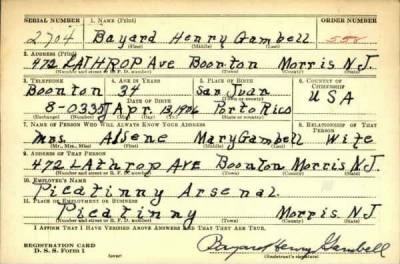 SERIAL NUMBER 1. NAME (Print) ORDER NUMBER
2704 Bayard Henry Gambell
(First) (Middle) (Last)
2. ADDRESS (Print)
472 LATHROP Ave Boonton Morris N.J.
(Number and street or R. F. D. number) (Town) (County) (State)
3. TELEPHONE 4. AGE IN YEARS 5. PLACE OF BIRTH 6. COUNTRY OF CITIZENSHIP
Boonton 34 San Juan
DATE OF BIRTH USA
8-0333J Apr. 1906 Porto Rico
(Exchange) (Number) (Mo.) (Day) (Yr.) (State or country)
7. NAME OF PERSON WHO WILL ALWAYS KNOW YOUR ADDRESS 8. RELATIONSHIP OF THAT PERSON
Mrs. Mary Gambell Wife
(Mr., Mrs., Miss) (First) (Middle) (Last)
9. ADDRESS OF THAT PERSON
472 LAthrop AVE Boonton Morris N.J.
(Number and street or R. F. D. number) (Town) (County) (State)
10. EMPLOYER'S NAME
Picatinny Arsenal
11. PLACE OF EMPLOYMENT OR BUSINESS
Picatinny Morris N.J.
(Number and street or R. F. D. number) (Town) (County) (State)
I AFFIRM THAT I HAVE VERIFIED ABOVE ANSWERS AND THAT THEY ARE TRUE.
REGISTRATION CARD
D. S. S. Form 1 (over) Bayard Henry Gambell
(Registrant's signature)